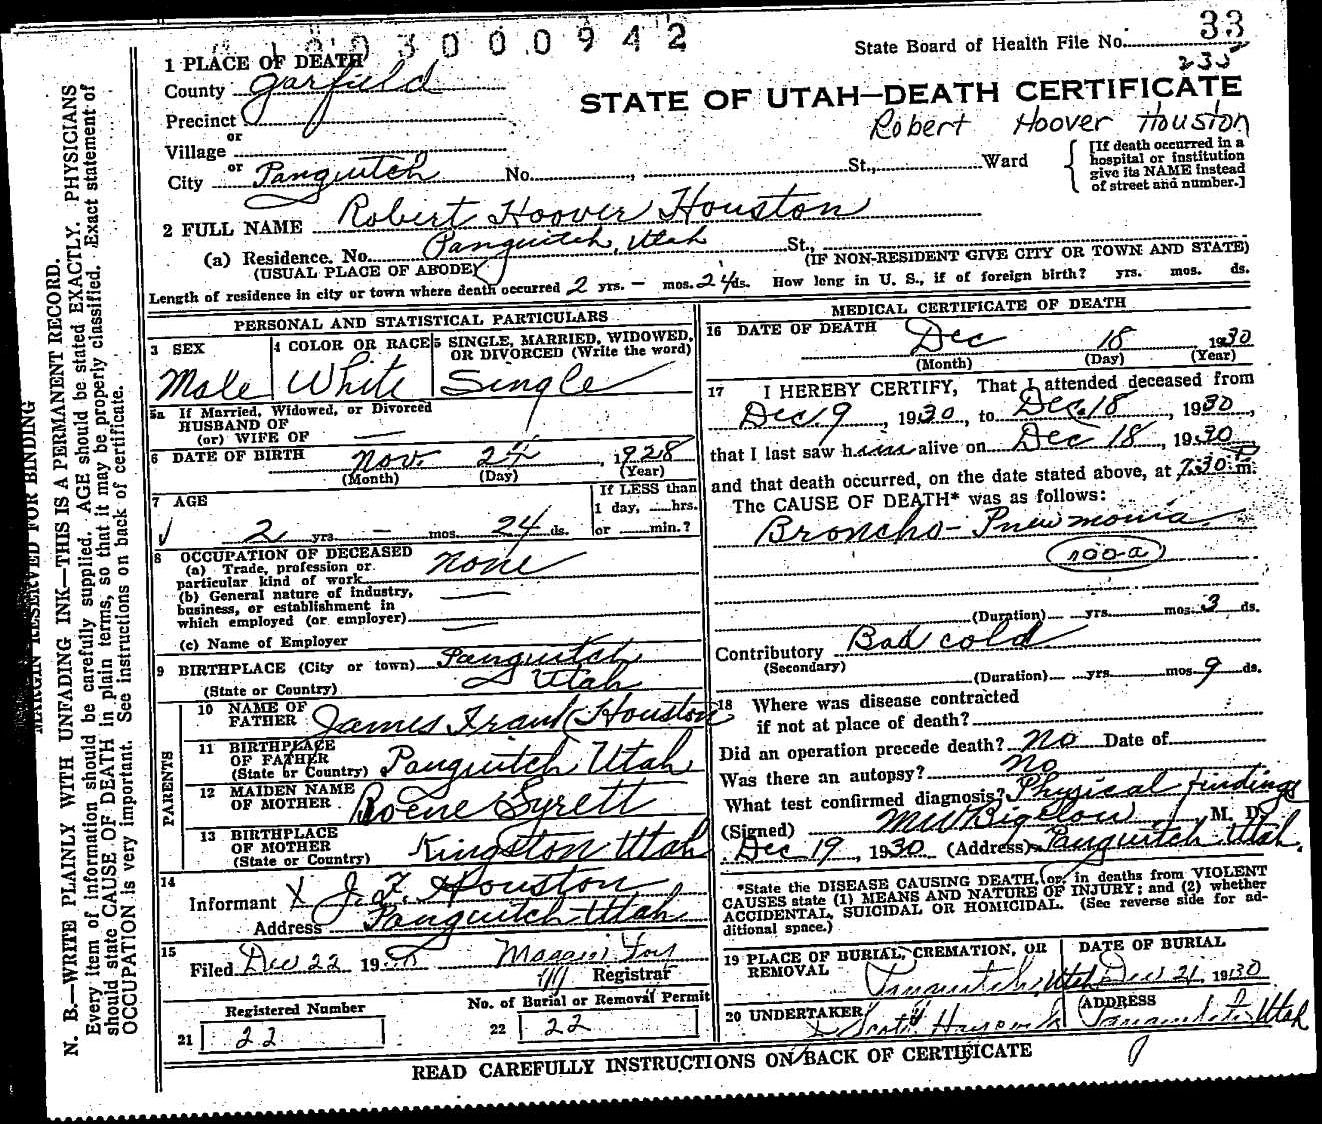 3 0 0 0 9 4 2
State Board of Health File No. 33
235
1 PLACE OF DEATH
County Garfield
STATE OF UTAH—DEATH CERTIFICATE
Precinct
Robert Hoover Houston
or
Village
or
City Panguitch No. , St., Ward
[If death occurred in a
hospital or institution
give its NAME instead
of street and number.]
2 FULL NAME Robert Hoover Houston
(a) Residence. No. Panguitch, Utah St.,
(USUAL PLACE OF ABODE) (IF NON-RESIDENT GIVE CITY OR TOWN AND STATE)
Length of residence in city or town where death occurred 2 yrs. — mos. 24 ds. How long in U. S., if of foreign birth? yrs. mos. ds.
PERSONAL AND STATISTICAL PARTICULARS
3 SEX
Male
4 COLOR OR RACE
White
5 SINGLE, MARRIED, WIDOWED,
OR DIVORCED (Write the word)
Single
5a If Married, Widowed, or Divorced
HUSBAND OF
(or) WIFE OF —
6 DATE OF BIRTH Nov. 24, 1928
(Month) (Day) (Year)
7 AGE
2 yrs. — mos. 24 ds.
If LESS than
1 day, hrs.
or min.?
8 OCCUPATION OF DECEASED
(a) Trade, profession or
particular kind of work None
(b) General nature of industry,
business, or establishment in
which employed (or employer) —
(c) Name of Employer —
9 BIRTHPLACE (City or town) Panguitch
(State or Country) Utah
PARENTS
10 NAME OF
FATHER James Frank Houston
11 BIRTHPLACE
OF FATHER
(State or Country) Panguitch Utah
12 MAIDEN NAME
OF MOTHER Roene Syrett
13 BIRTHPLACE
OF MOTHER
(State or Country) Kingston Utah
14
Informant X J. F. Houston
Address Panguitch Utah
15
Filed Dec 22 19 Registrar
Registered Number
21 22
No. of Burial or Removal Permit
22 22
MEDICAL CERTIFICATE OF DEATH
16 DATE OF DEATH Dec 18 1930
(Month) (Day) (Year)
17 I HEREBY CERTIFY, That I attended deceased from
Dec. 9, 1930, to Dec. 18, 1930,
that I last saw him alive on Dec 18, 1930
and that death occurred, on the date stated above, at 7:30 P m.
The CAUSE OF DEATH* was as follows:
Broncho-Pneumonia
100-a
(Duration) yrs. mos. 3 ds.
Contributory Bad cold
(Secondary)
(Duration) yrs. mos. 9 ds.
18 Where was disease contracted
if not at place of death?
Did an operation precede death? No Date of
Was there an autopsy? No
What test confirmed diagnosis? Physical findings
(Signed) M W Bigelow M. D.
Dec 19, 1930 (Address) Panguitch Utah.
*State the DISEASE CAUSING DEATH, or, in deaths from VIOLENT
CAUSES state (1) MEANS AND NATURE OF INJURY; and (2) whether
ACCIDENTAL, SUICIDAL OR HOMICIDAL. (See reverse side for ad-
ditional space.)
19 PLACE OF BURIAL, CREMATION, OR
REMOVAL
Panguitch, Utah
DATE OF BURIAL
Dec 21, 1930
20 UNDERTAKER
ADDRESS
Panguitch Utah
READ CAREFULLY INSTRUCTIONS ON BACK OF CERTIFICATE
MARGIN RESERVED FOR BINDING
N. B.—WRITE PLAINLY WITH UNFADING INK—THIS IS A PERMANENT RECORD.
Every item of information should be carefully supplied. AGE should be stated EXACTLY. PHYSICIANS
should state CAUSE OF DEATH in plain terms, so that it may be properly classified. Exact statement of
OCCUPATION is very important. See instructions on back of certificate.